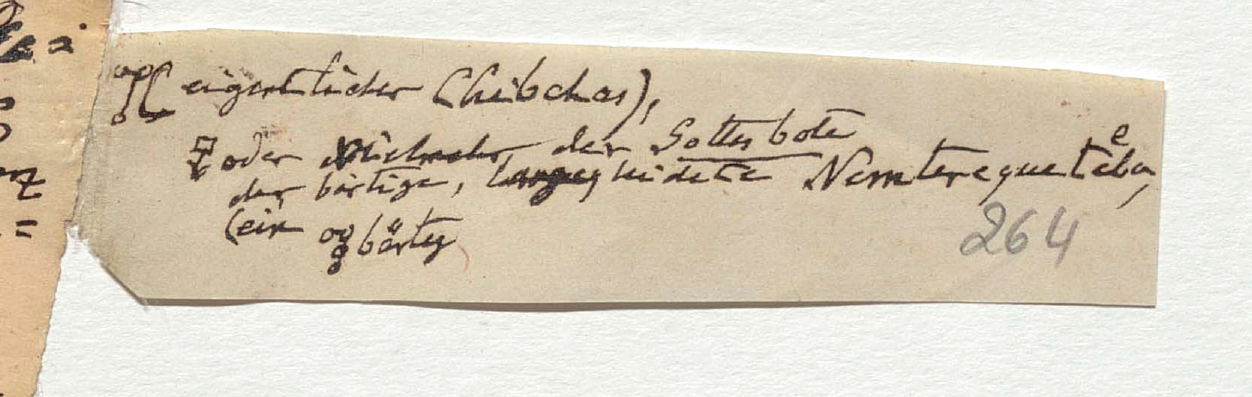 (eigentlicher Chibchas),
oder vielmehr der Gottesbote
der bärtige, langgekleidete Nemterequeteba,
(ein bärtig
264